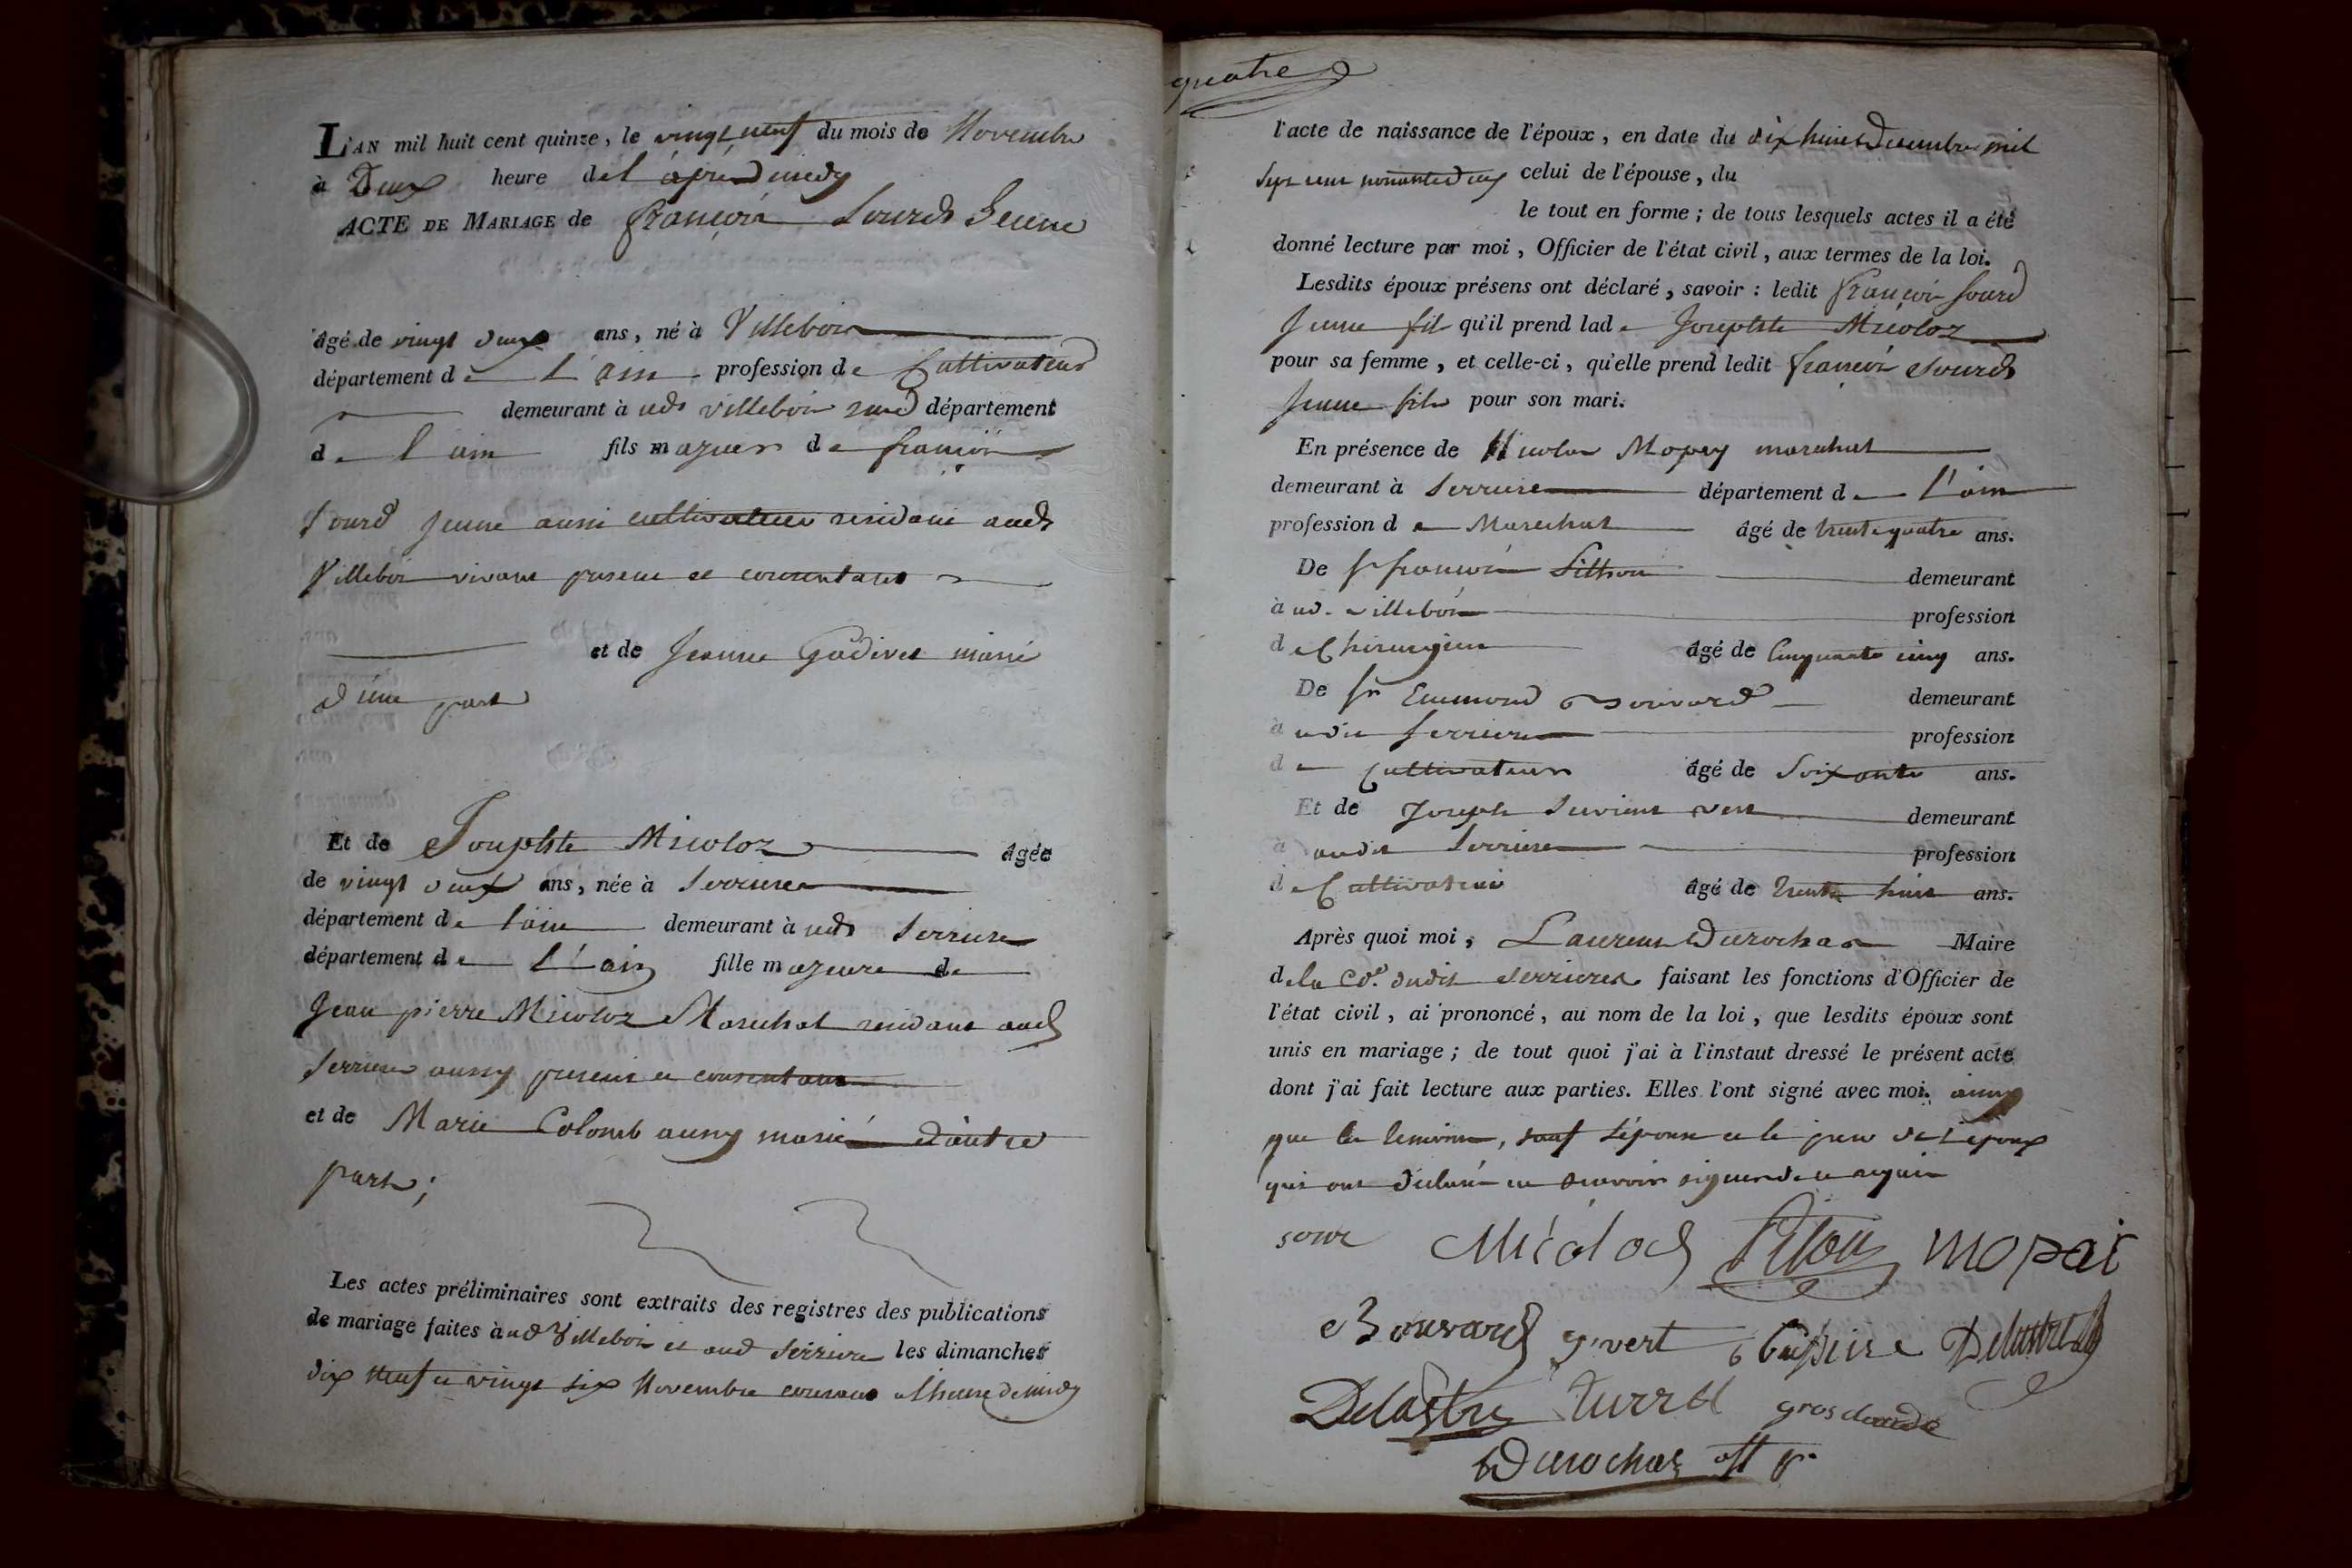 L'AN mil huit cent quinze, le vingt neuf du mois de Novembre
à Deux heure de l'après midy
ACTE DE MARIAGE de françois Sourd Jeune
âgé de vingt deux ans, né à Villebois
département de L'ain profession de Cultivateur
demeurant à udt villebois département
de l'ain fils majeur de françois
Sourd Jeune aussi cultivateur residant audt
Villebois vivant present et consentant
et de Jeanne Gadivet marié
d'une part
Et de Josephte Micoloz âgée
de vingt deux ans, née à Serriere
département de l'ain demeurant à udt Serriere
département de L'ain fille majeure de
Jean pierre Micoloz Marechal residant audt
Serriere aussy present et consentant
et de Marie Colomb aussy mariés d'autre
part;
Les actes préliminaires sont extraits des registres des publications
de mariage faites à ud Villebois et aud Serriere les dimanches
dix neuf et vingt six Novembre courant a lheure de midy
quatre
l'acte de naissance de l'époux, en date du dix huit Decembre mil
sept cent nonante deux celui de l'épouse, du
le tout en forme; de tous lesquels actes il a été
donné lecture par moi, Officier de l'état civil, aux termes de la loi.
Lesdits époux présens ont déclaré, savoir: ledit françois Sourd
Jeune fils qu'il prend lade Josephte Micoloz
pour sa femme, et celle-ci, qu'elle prend ledit françois Sourd
Jeune fils pour son mari.
En présence de Nicolas Mopey marechal
demeurant à Serriere département de L'ain
profession de Marechal âgé de trente quatre ans.
De Sr francois Pithou demeurant
à ud. villebois profession
de Chirurgien âgé de Cinquante cinq ans.
De Sr Enemond Bouvard demeurant
à udit Serriere profession
de Cultivateur âgé de Soixante ans.
Et de Joseph vert demeurant
à audit Serriere profession
de Cultivateur âgé de trente huit ans.
Après quoi moi, Laurent Durochat Maire
de la Co. dudit Serrieres faisant les fonctions d'Officier de
l'état civil, ai prononcé, au nom de la loi, que lesdits époux sont
unis en mariage; de tout quoi j'ai à l'instaut dressé le présent acte
dont j'ai fait lecture aux parties. Elles l'ont signé avec moi. ainsy
que les temoins, sauf l'épouse et le pere de l'epoux
qui ont declaré ne scavoir signer de ce requis
sour Micolod Pitou mopai
Bouvard j. vert Delastre
Delastre turrel gros claude
Durochat off pr